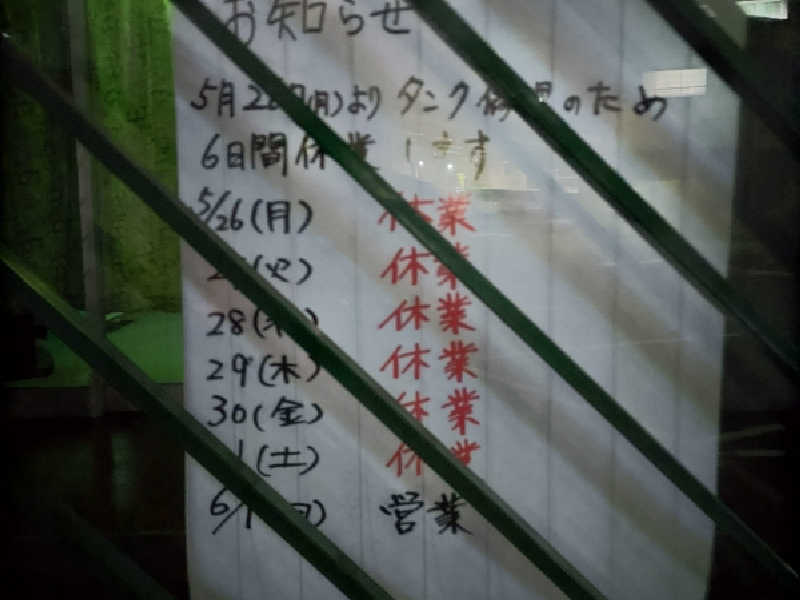 お知らせ
5月26日(月)より タンク修理のため
6日間休業します
5/26(月) 休業
(火) 休業
28(水) 休業
29(木) 休業
30(金) 休業
1(土) 休業
6/1(日) 営業